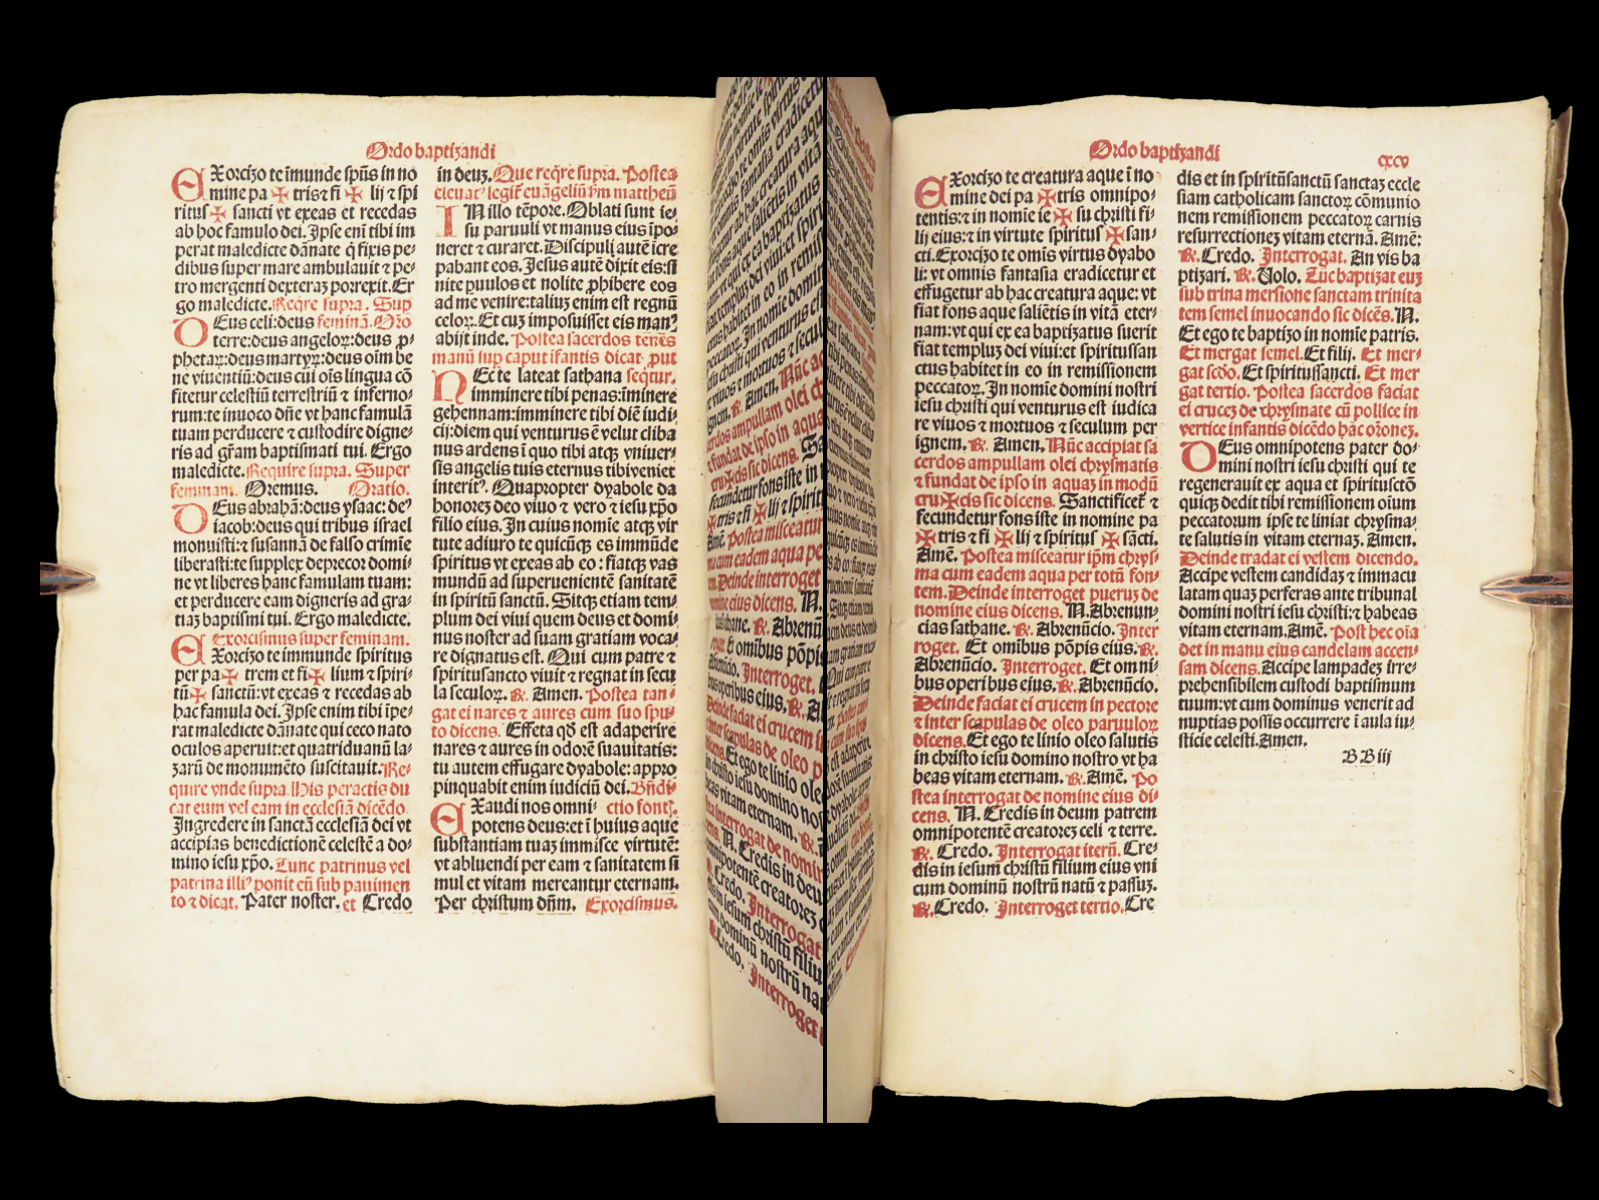 Ordo baptizandi
EXorcizo te īmunde spūs in no
mine pa ✠ tris ⁊ fi ✠ lij ⁊ spi
ritus ✠ sancti vt exeas et recedas
ab hoc famulo dei. Ipse enī tibi im
perat maledicte dānate q̄ fixis pe-
dibus super mare ambulauit ⁊ pe-
tro mergenti dexteraȝ porrexit. Er
go maledicte. Reqre supra. Sup
DEus celi: deus feminā. Oro
terre: deus angeloꝝ: deus ꝓ-
phetaꝝ: deus martyꝝ: deus oīm be
ne viuentiū: deus cui oīs lingua cō
fitetur celestiū terrestriū ⁊ inferno-
rum: te inuoco dn̄e vt hanc famulā
tuam perducere ⁊ custodire digne-
ris ad gr̄am baptismati tui. Ergo
maledicte. Require supra. Super
feminam. Oremus. Oratio.
DEus abrahā: deus ysaac: deꝰ
iacob: deus qui tribus israel
monuisti: ⁊ susannā de falso crimīe
liberasti: te supplex deprecor domi-
ne vt liberes hanc famulam tuam:
et perducere eam digneris ad gra-
tiaȝ baptismi tui. Ergo maledicte.
Exorcismus super feminam.
EXorcizo te immunde spiritus
per pa ✠ trem et fi ✠ lium ⁊ spiri-
tū ✠ sanctū: vt exeas ⁊ recedas ab
hac famula dei. Ipse enim tibi īpe-
rat maledicte dānate qui ceco nato
oculos aperuit: et quatriduanū la-
zarū de monumēto suscitauit. Re-
quire vnde supra. His peractis du
cat eum vel eam in ecclesiā dicēdo.
Ingredere in sanctā ecclesiā dei vt
accipias benedictionē celestē a do-
mino iesu xp̄o. Tunc patrinus vel
patrina illiꝰ ponit eū sub pauimen
to ⁊ dicat. Pater noster. et Credo
in deuȝ. Que reqre supra. Postea
eleuatꝰ legit̄ euāgeliū ẜm mattheū
IN illo tēpore. Oblati sunt ie-
su paruuli vt manus eius īpo-
neret ⁊ curaret. Discipuli autē īcre
pabant eos. Jesus autē dixit eis: si
nite ꝑuulos et nolite ꝓhibere eos
ad me venire: taliuȝ enim est regnū
celoꝝ. Et cuȝ imposuisset eis manꝰ
abijt inde. Postea sacerdos tenēs
manū sup caput ifantis dicat ꝓut
NEc te lateat sathana seqtur.
imminere tibi penas: īminere
gehennam: imminere tibi diē iudi-
cij: diem qui venturus ē velut cliba
nus ardens ī quo tibi atqȝ vniuer-
sis angelis tuis eternus tibi veniet
interitꝰ. Quapropter dyabole da
honoreȝ deo viuo ⁊ vero ⁊ iesu xp̄o
filio eius. In cuius nomīe atqȝ vir
tute adiuro te quicūqȝ es immūde
spiritus vt exeas ab eo: fiatqȝ vas
mundū ad superuenientē sanitatē
in spiritū sanctū. Sitqȝ etiam tem-
plum dei viui quem deus et domi-
nus noster ad suam gratiam voca-
re dignatus est. Qui cum patre ⁊
spiritusancto viuit ⁊ regnat in secu
la seculoꝝ. ℟. Amen. Postea tan-
gat ei nares ⁊ aures cum suo spu-
to dicens. Effeta qd̄ est adaperire
nares ⁊ aures in odorē suauitatis:
tu autem effugare dyabole: appro
pinquabit enim iudiciū dei. Bn̄di-
EXaudi nos omni- ctio fontꝭ.
potens deus: et ī huius aque
substantiam tuaȝ immisce virtutē:
vt abluendi per eam ⁊ sanitatem si
mul et vitam mercantur eternam.
Per christum dn̄m. Exorcismus.
Ordo baptizandi cxcv
EXorcizo te creatura aque ī no-
mine dei pa ✠ tris omnipo-
tentis: ⁊ in nomīe ie ✠ su christi fi-
lij eius: ⁊ in virtute spiritus ✠ san-
cti. Exorcizo te omīs virtus dyabo
li: vt omnis fantasia eradicetur et
effugetur ab hac creatura aque: vt
fiat fons aque saliētis in vitā eter-
nam: vt qui ex ea baptizatus fuerit
fiat templuȝ dei viui: et spiritussan
ctus habitet in eo in remissionem
peccatoꝝ. In nomīe domini nostri
iesu christi qui venturus est iudica
re viuos ⁊ mortuos ⁊ seculum per
ignem. ℟. Amen. Nūc accipiat sa
cerdos ampullam olei chrysmatis
⁊ fundat de ipso in aquaȝ in modū
cru✠cis sic dicens. Sanctificet̄ ⁊
fecundetur fons iste in nomine pa
✠ tris ⁊ fi ✠ lij ⁊ spiritus ✠ sācti.
Amē. Postea misceatur ip̄m chrys-
ma cum eadem aqua per totū fon-
tem. Deinde interroget pueruȝ de
nomine eius dicens. N. Abrenun-
cias sathane. ℟. Abrenūcio. Inter
roget. Et omibus pōpis eius. ℟.
Abrenūcio. Interroget. Et omni-
bus operibus eius. ℟. Abrenūcio.
Deinde faciat ei crucem in pectore
⁊ inter scapulas de oleo paruuloꝝ
dicens. Et ego te linio oleo salutis
in christo iesu domino nostro vt ha
beas vitam eternam. ℟. Amē. Po
stea interrogat de nomine eius di-
cens. N. Credis in deum patrem
omnipotentē creatoreȝ celi ⁊ terre.
℟. Credo. Interrogat iterū. Cre-
dis in iesum christū filium eius vni
cum dominū nostrū natū ⁊ passuȝ.
℟. Credo. Interroget tertio. Cre
dis et in spiritūsanctū sanctaȝ eccle
siam catholicam sanctoꝝ cōmunio
nem remissionem peccatoꝝ carnis
resurrectioneȝ vitam eternā. Amē:
℟. Credo. Interrogat. An vis ba
ptizari. ℟. Uolo. Tūc baptizat euȝ
sub trina mersione sanctam trinita
tem semel inuocando sic dicēs. N.
Et ego te baptizo in nomīe patris.
Et mergat semel. Et filij. Et mer-
gat scd̄o. Et spiritussancti. Et mer
gat tertio. Postea sacerdos faciat
ei cruceȝ de chrysmate cū pollice in
vertice infantis dicēdo hāc or̄oneȝ.
DEus omnipotens pater do-
mini nostri iesu christi qui te
regenerauit ex aqua et spiritusctō
quiqȝ dedit tibi remissionem oīum
peccatorum ipse te liniat chrysma-
te salutis in vitam eternaȝ. Amen.
Deinde tradat ei vestem dicendo.
Accipe vestem candidaȝ ⁊ immacu
latam quaȝ perferas ante tribunal
domini nostri iesu christi: ⁊ habeas
vitam eternam. Amē. Post hec oīa
det in manu eius candelam accen-
sam dicens. Accipe lampadeȝ irre-
prehensibilem custodi baptismum
tuum: vt cum dominus venerit ad
nuptias possis occurrere ī aula iu-
sticie celesti. Amen.
BB iij